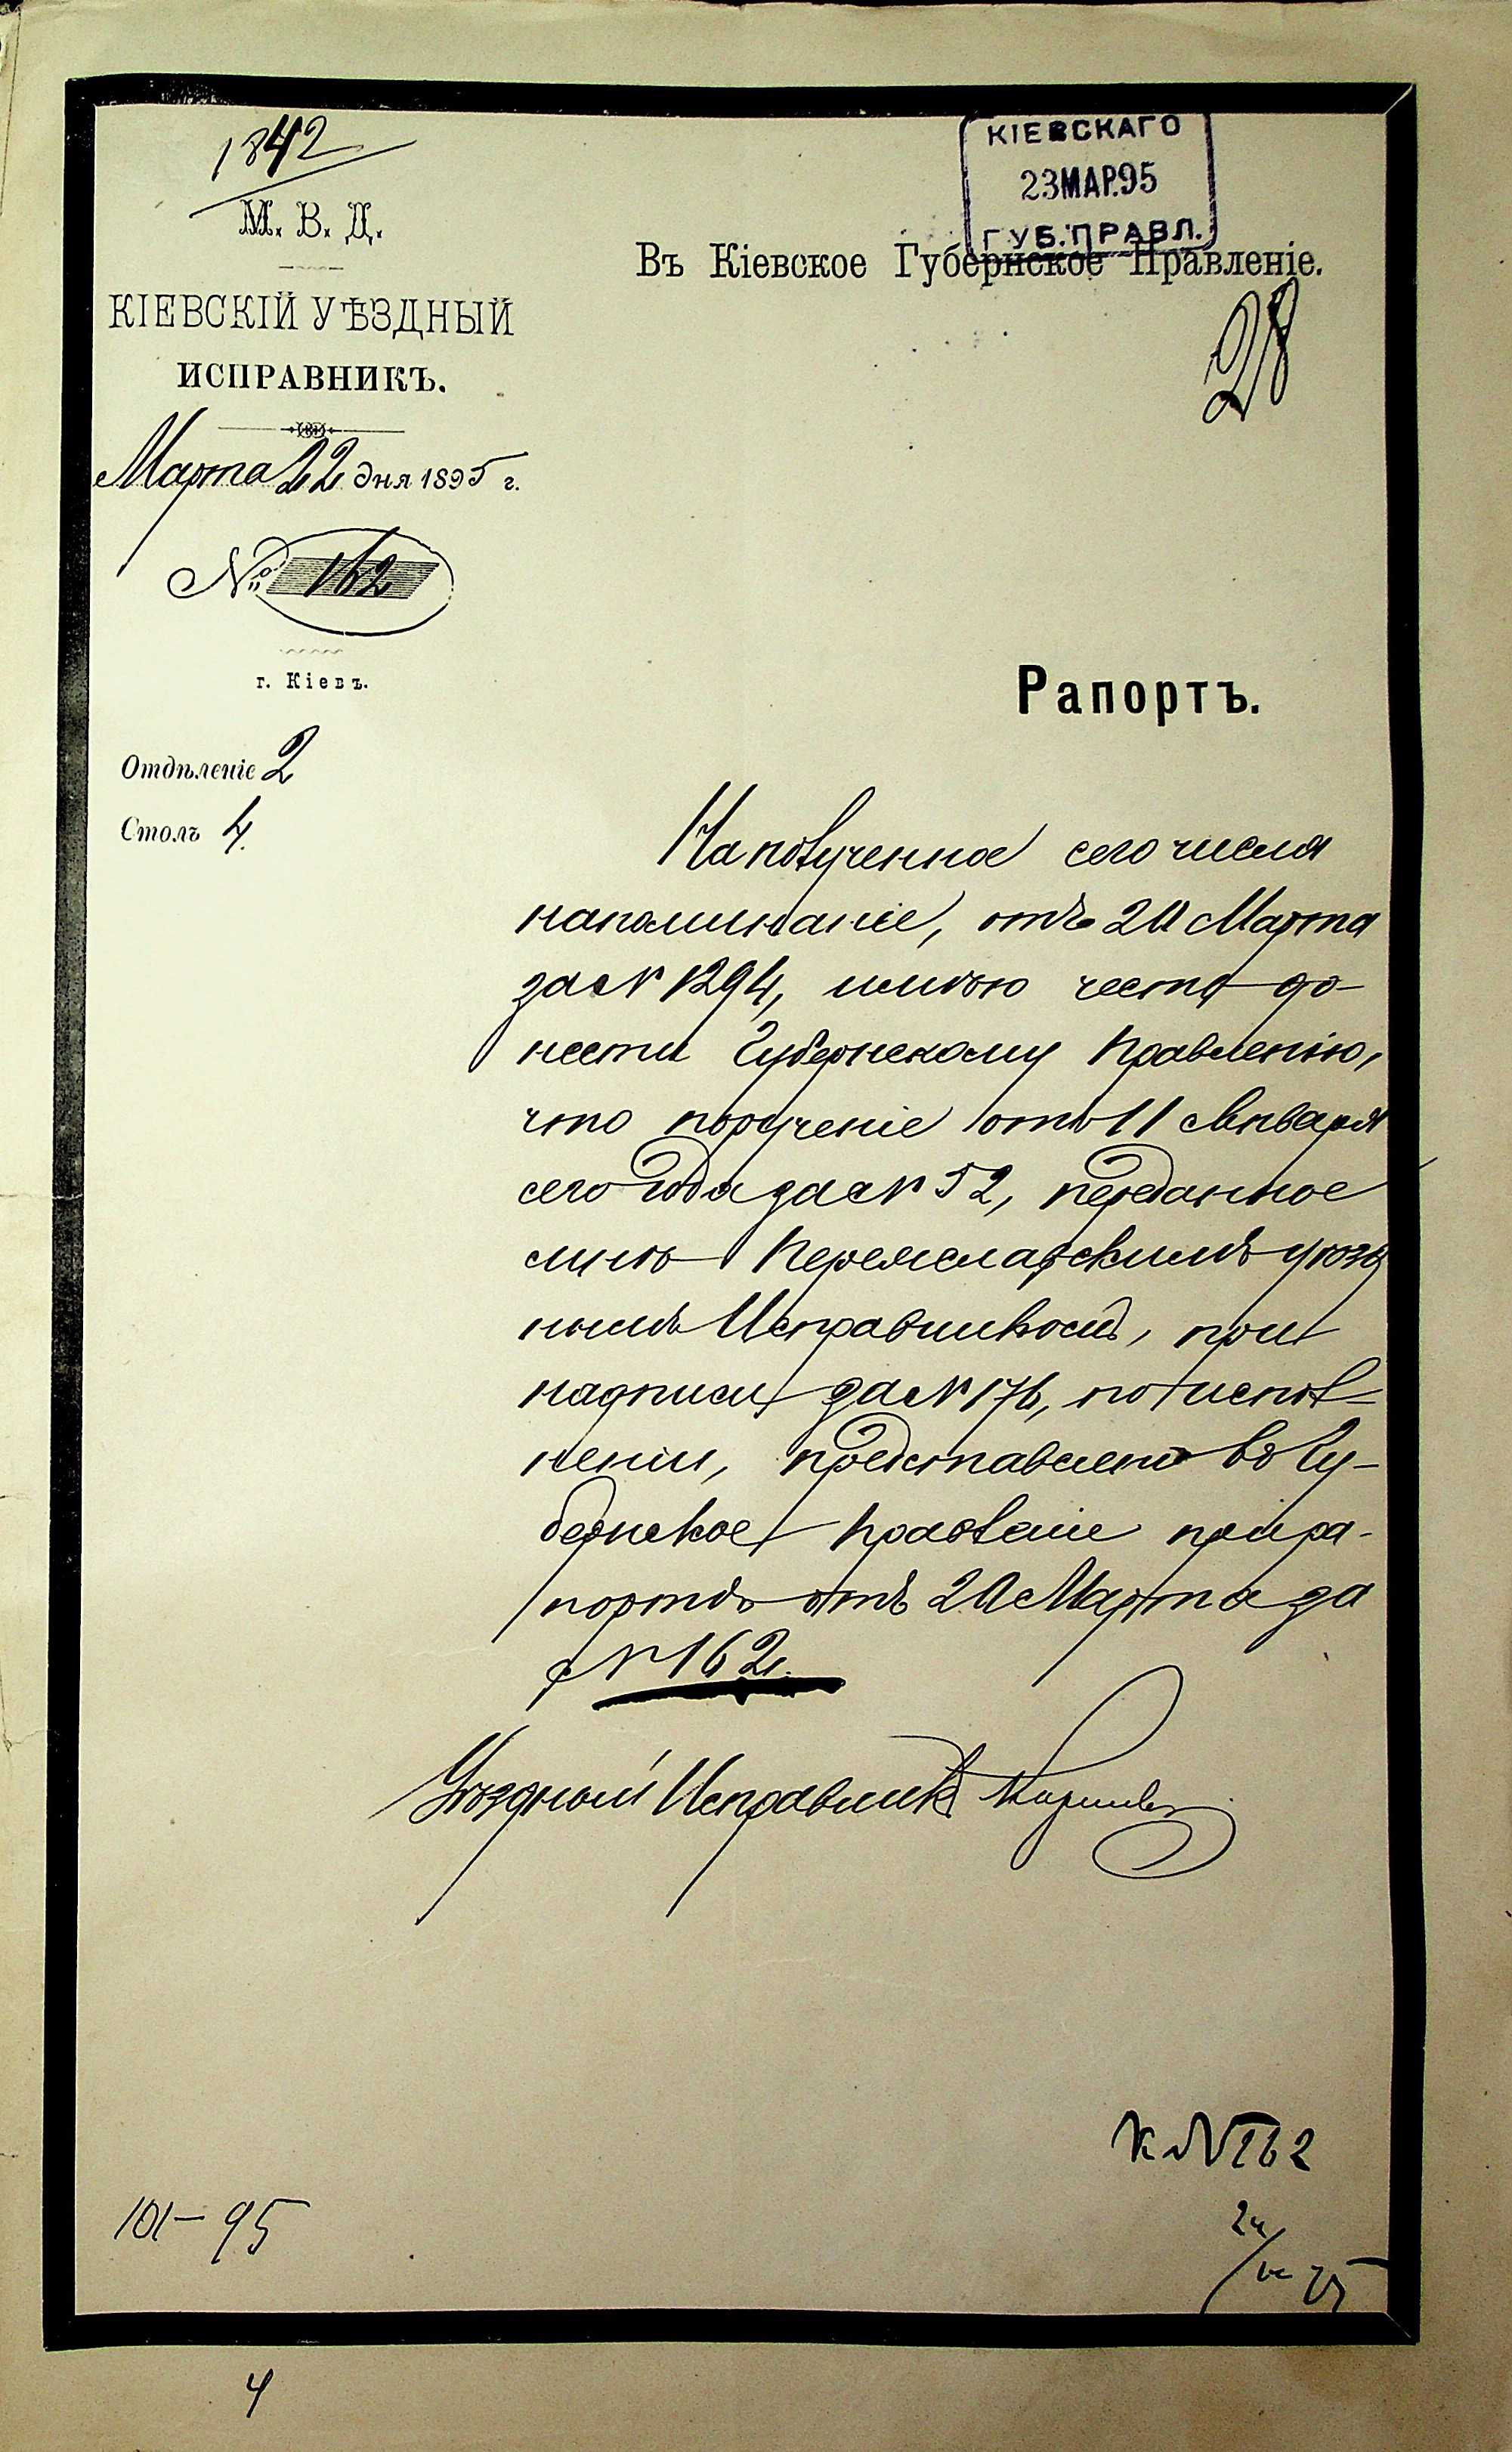 1842
М. В. Д.
КІЕВСКІЙ УѢЗДНЫЙ
ИСПРАВНИКЪ.
Марта 22 дня 1895 г.
№ 162
г. Кіевъ.
Отдѣленіе 2
Столъ 4.
КІЕВСКАГО
23 МАР. 95
ГУБ. ПРАВЛ.
Въ Кіевское Губернское Правленіе.
28
Рапортъ.
На полученное сего числа
напоминаніе, отъ 20 Марта
за № 1294, имѣю честь до-
нести Губернскому Правленію,
что порученіе отъ 11 Января
сего года за № 52, переданное
мнѣ Переяславскимъ уѣзд
нымъ Исправникомъ, при
надписи за № 176, по испол-
неніи, представлено въ Гу-
бернское Правленіе при ра-
портѣ отъ 20 Марта за
№ 162.
Уѣздный Исправникъ
К № 162
101-95
4